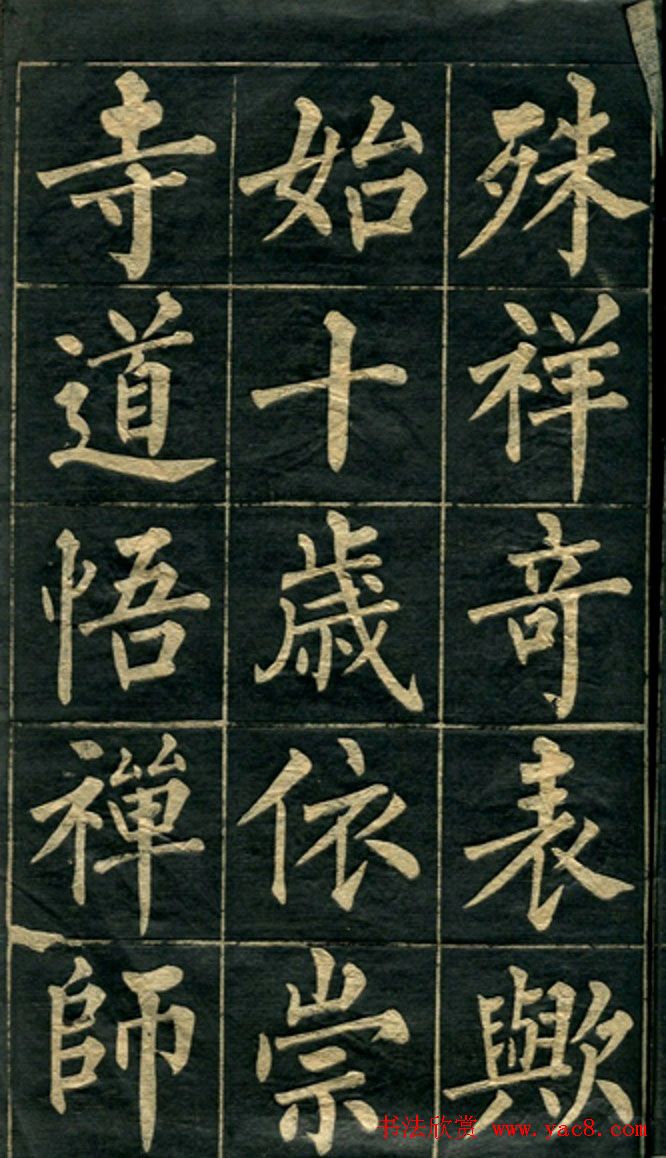 殊祥奇表歟
始十歲依崇
寺道悟禪師
书法欣赏 www.yac8.com